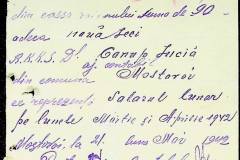 din cassa comunei suma de 90
adica nouă zeci
A.K.K.S. Dl. Canup Inciă
aj. contabil
din comuna Mostorov
ce reprezintă Salarul lunar
pe lunile Martie și Aprilie 1942
Mostovoi, la 21. luna Mai 1942